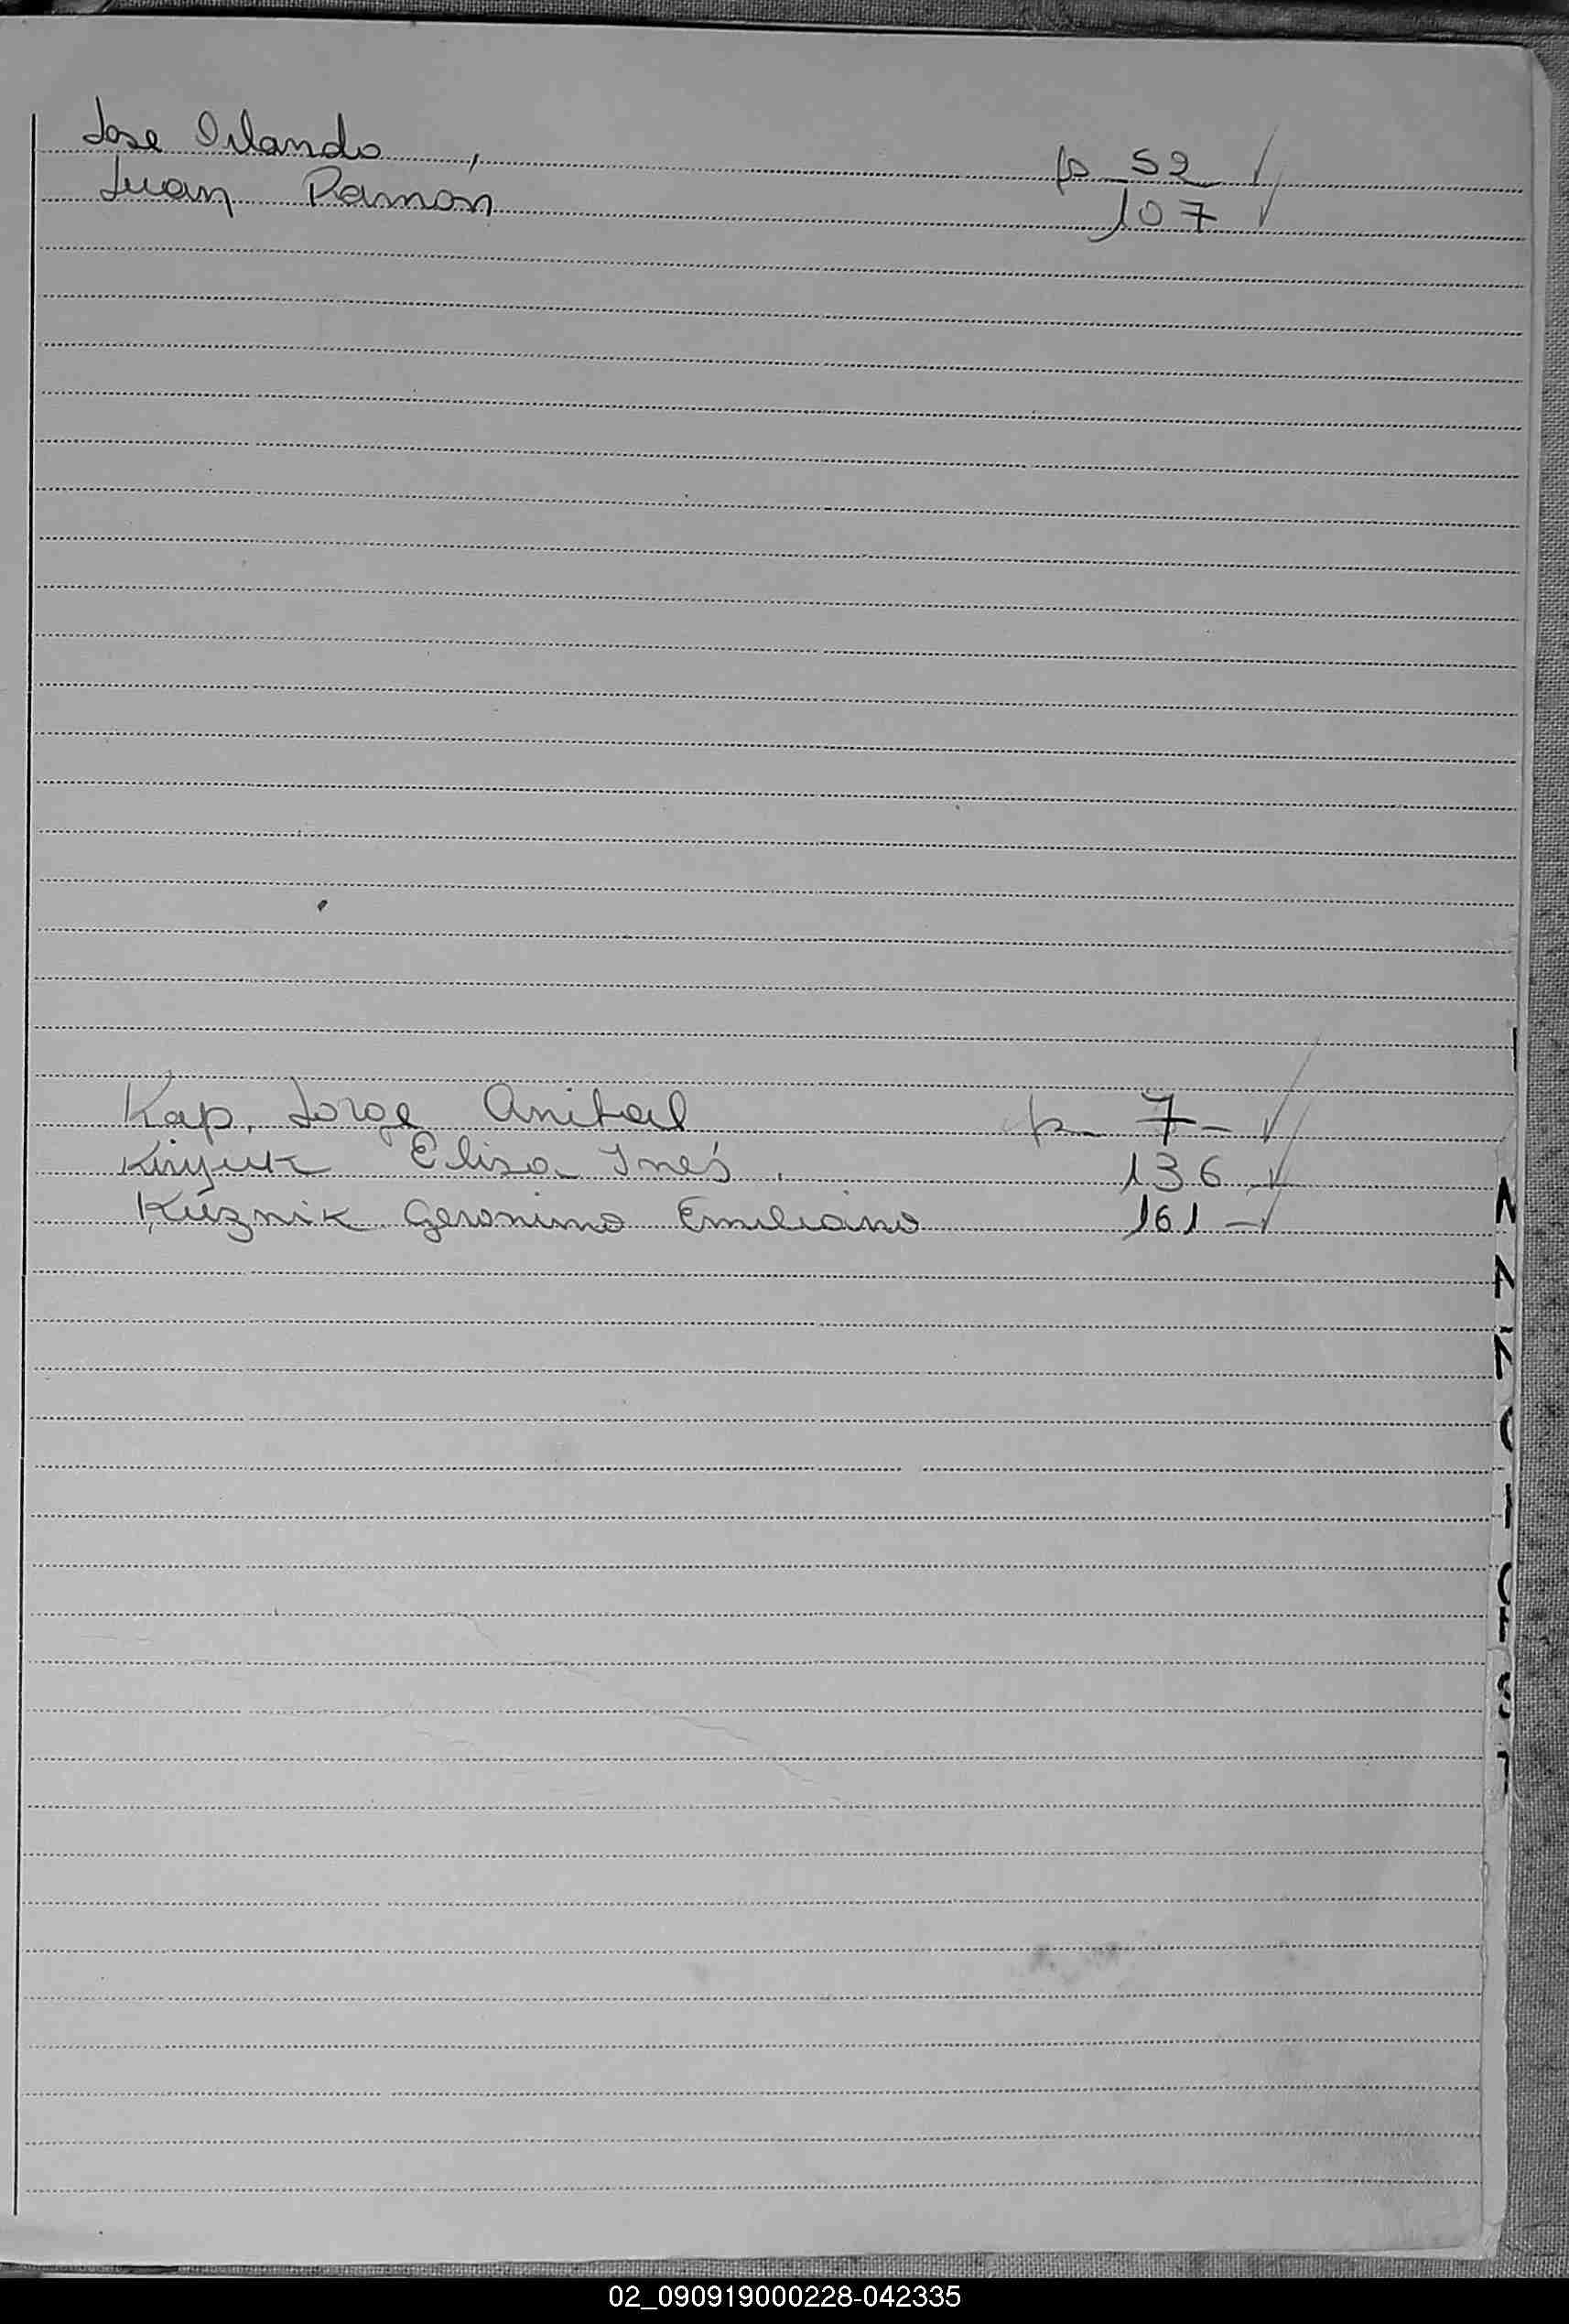 Jose Orlando, p 52 ✓
Juan Ramon 107 ✓
Kap, Jorge Anibal p- 7- ✓
Kinyuk Elisa Inés. 136 - ✓
Kuznik Geronimo Emiliano 161 - ✓
02_090919000228-042335